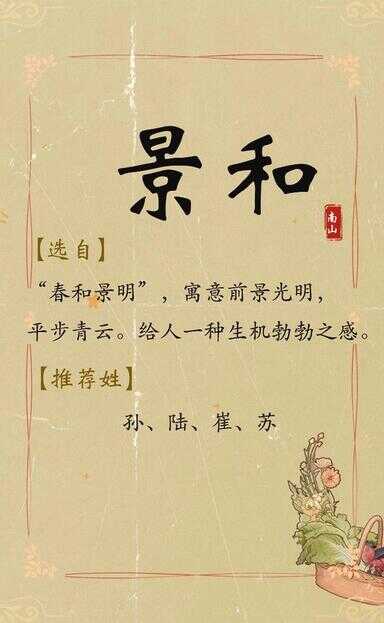 景和
南山
【选自】
“春和景明”，寓意前景光明，
平步青云。给人一种生机勃勃之感。
【推荐姓】
孙、陆、崔、苏